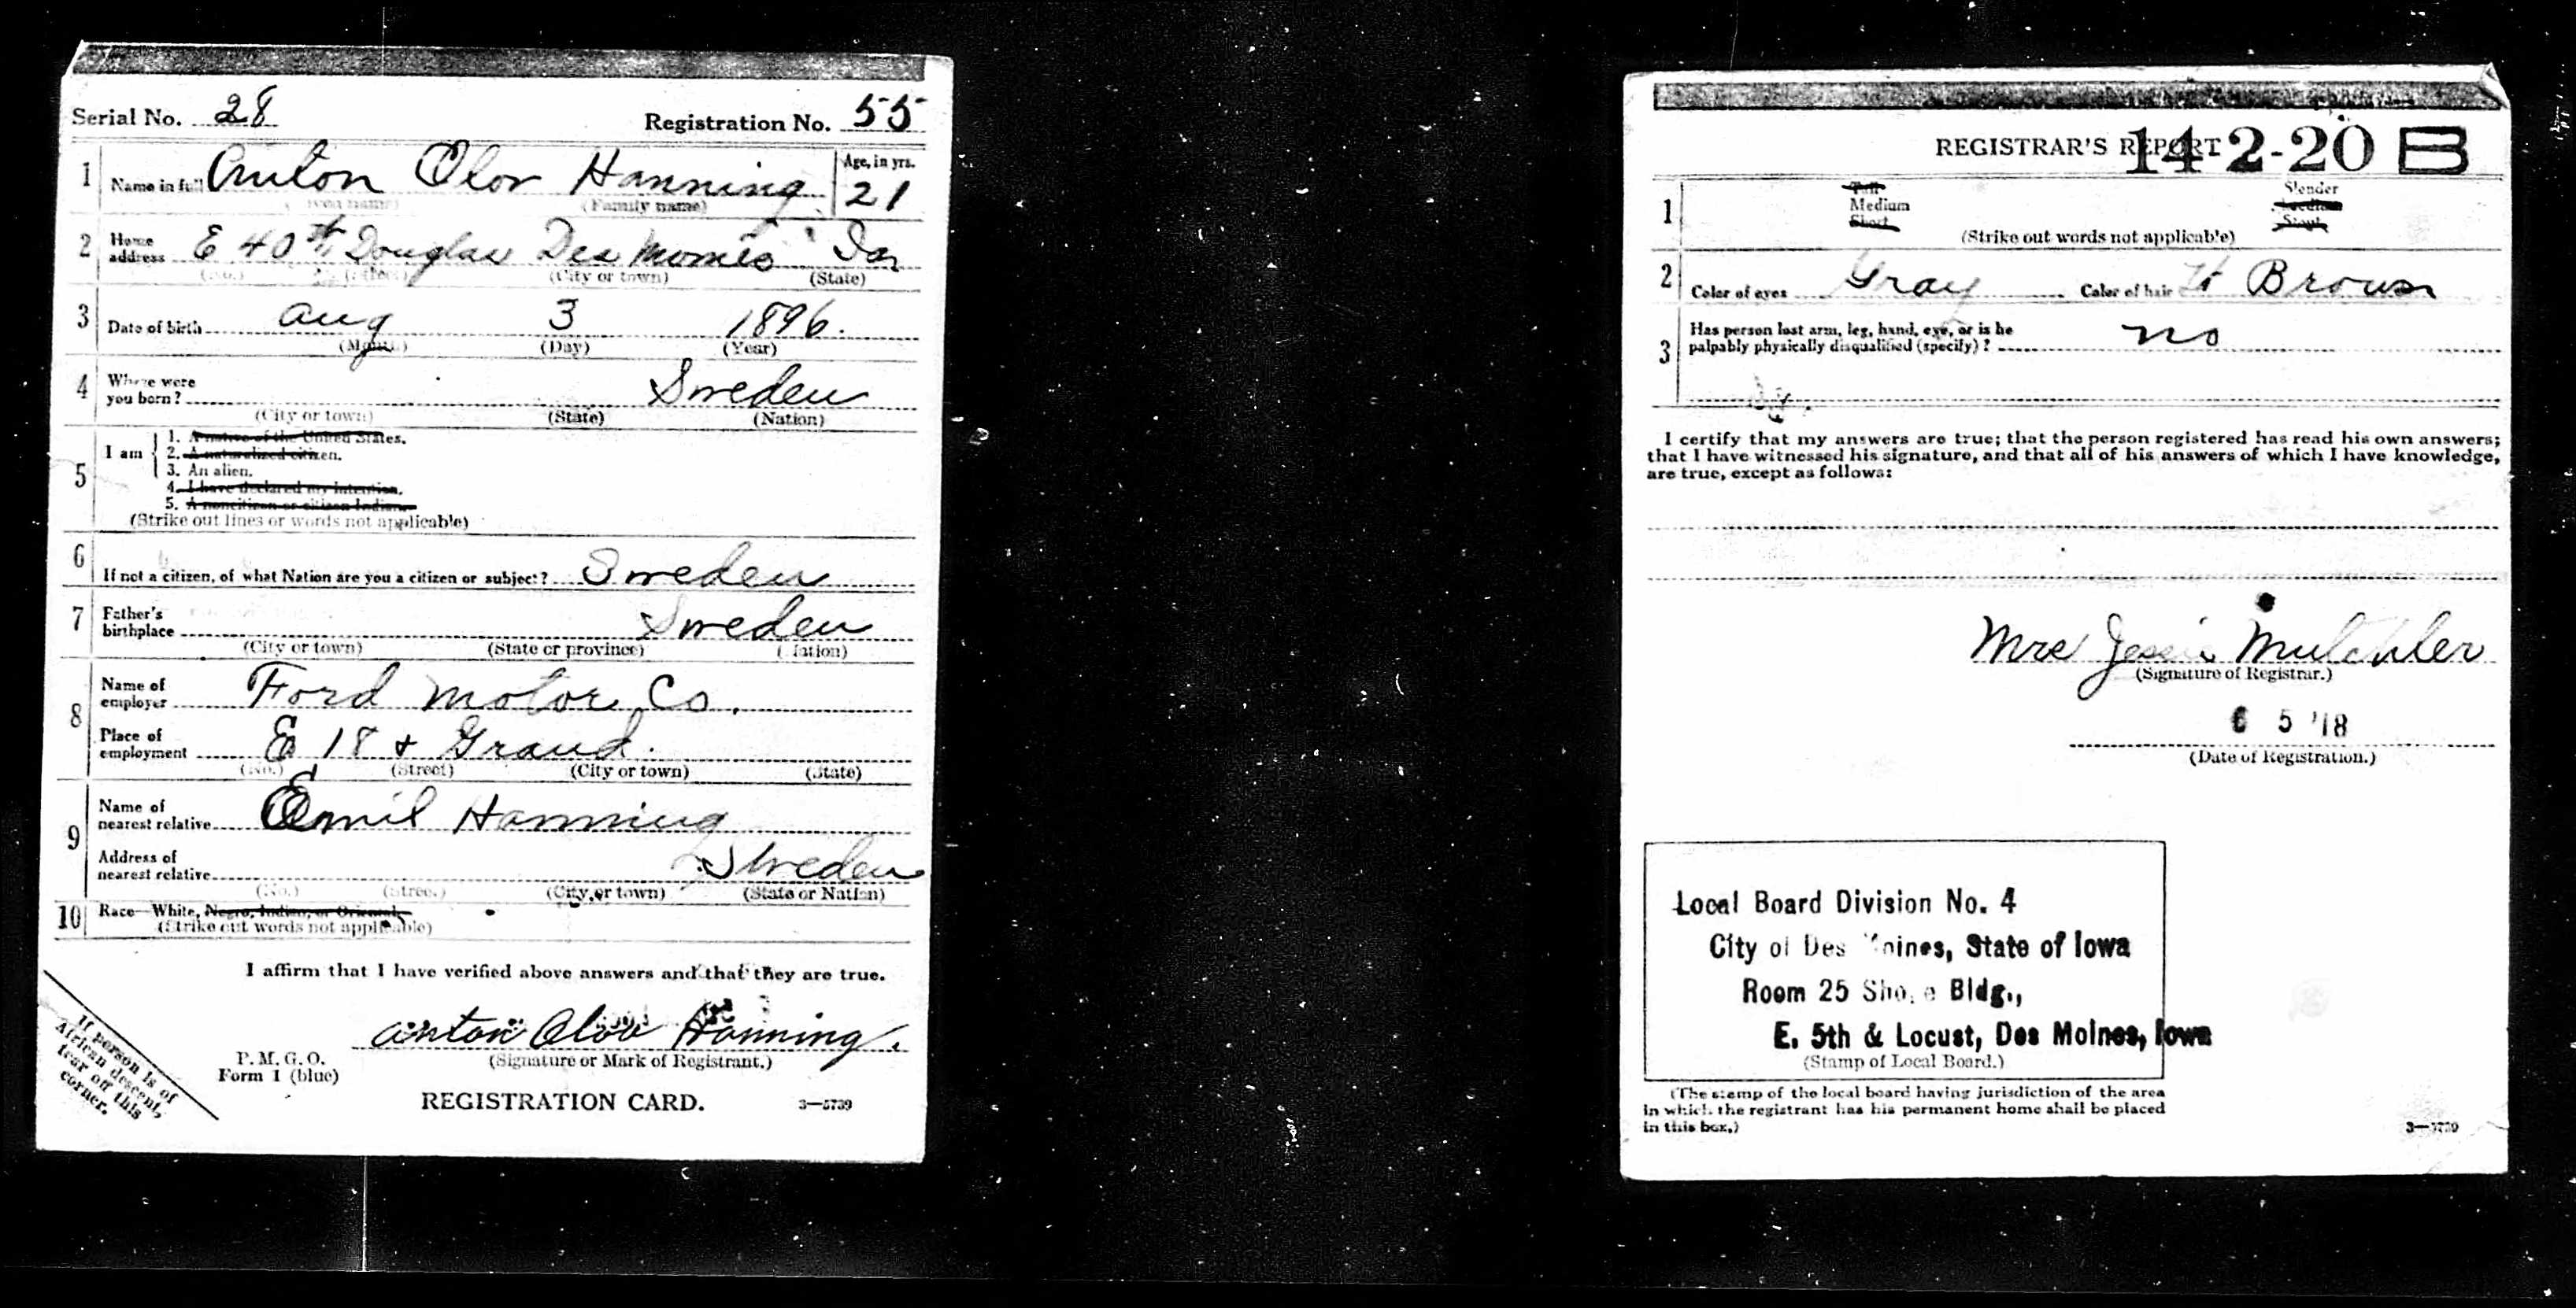 Serial No. 28 Registration No. 55
1 Name in full Anton Olov Hanning Age, in yrs. 21
(Family name)
2 Home address E 40th Douglas Des Moines Ia
(No.) (Street) (City or town) (State)
3 Date of birth Aug 3 1896.
(Month) (Day) (Year)
4 Where were you born? Sweden
(City or town) (State) (Nation)
5 I am
1. A native of the United States.
2. A naturalized citizen.
3. An alien.
4. I have declared my intention.
5. A noncitizen or citizen Indian.
(Strike out lines or words not applicable)
6 If not a citizen, of what Nation are you a citizen or subject? Sweden
7 Father's birthplace Sweden
(City or town) (State or province) (Nation)
8 Name of employer Ford Motor Co.
Place of employment E 18 & Grand.
(No.) (Street) (City or town) (State)
9 Name of nearest relative Emil Hanning
Address of nearest relative Sweden
(No.) (Street) (City or town) (State or Nation)
10 Race—White, Negro, Indian, or Oriental
(Strike out words not applicable)
I affirm that I have verified above answers and that they are true.
Anton Olov Hanning.
(Signature or Mark of Registrant.)
P. M. G. O.
Form 1 (blue)
REGISTRATION CARD.
3—5739
If person is of
African descent,
tear off this
corner.
REGISTRAR'S REPORT 14-2-20 B
1 Tall Slender
Medium Medium
Short Stout
(Strike out words not applicable)
2 Color of eyes Gray Color of hair Lt Brown
3 Has person lost arm, leg, hand, eye, or is he
palpably physically disqualified (specify)? no
I certify that my answers are true; that the person registered has read his own answers;
that I have witnessed his signature, and that all of his answers of which I have knowledge,
are true, except as follows:
Mrs Jessie Mutchler
(Signature of Registrar.)
6 5 '18
(Date of Registration.)
Local Board Division No. 4
City of Des Moines, State of Iowa
Room 25 Bldg.,
E. 5th & Locust, Des Moines, Iowa
(Stamp of Local Board.)
(The stamp of the local board having jurisdiction of the area
in which the registrant has his permanent home shall be placed
in this box.)
3—5739